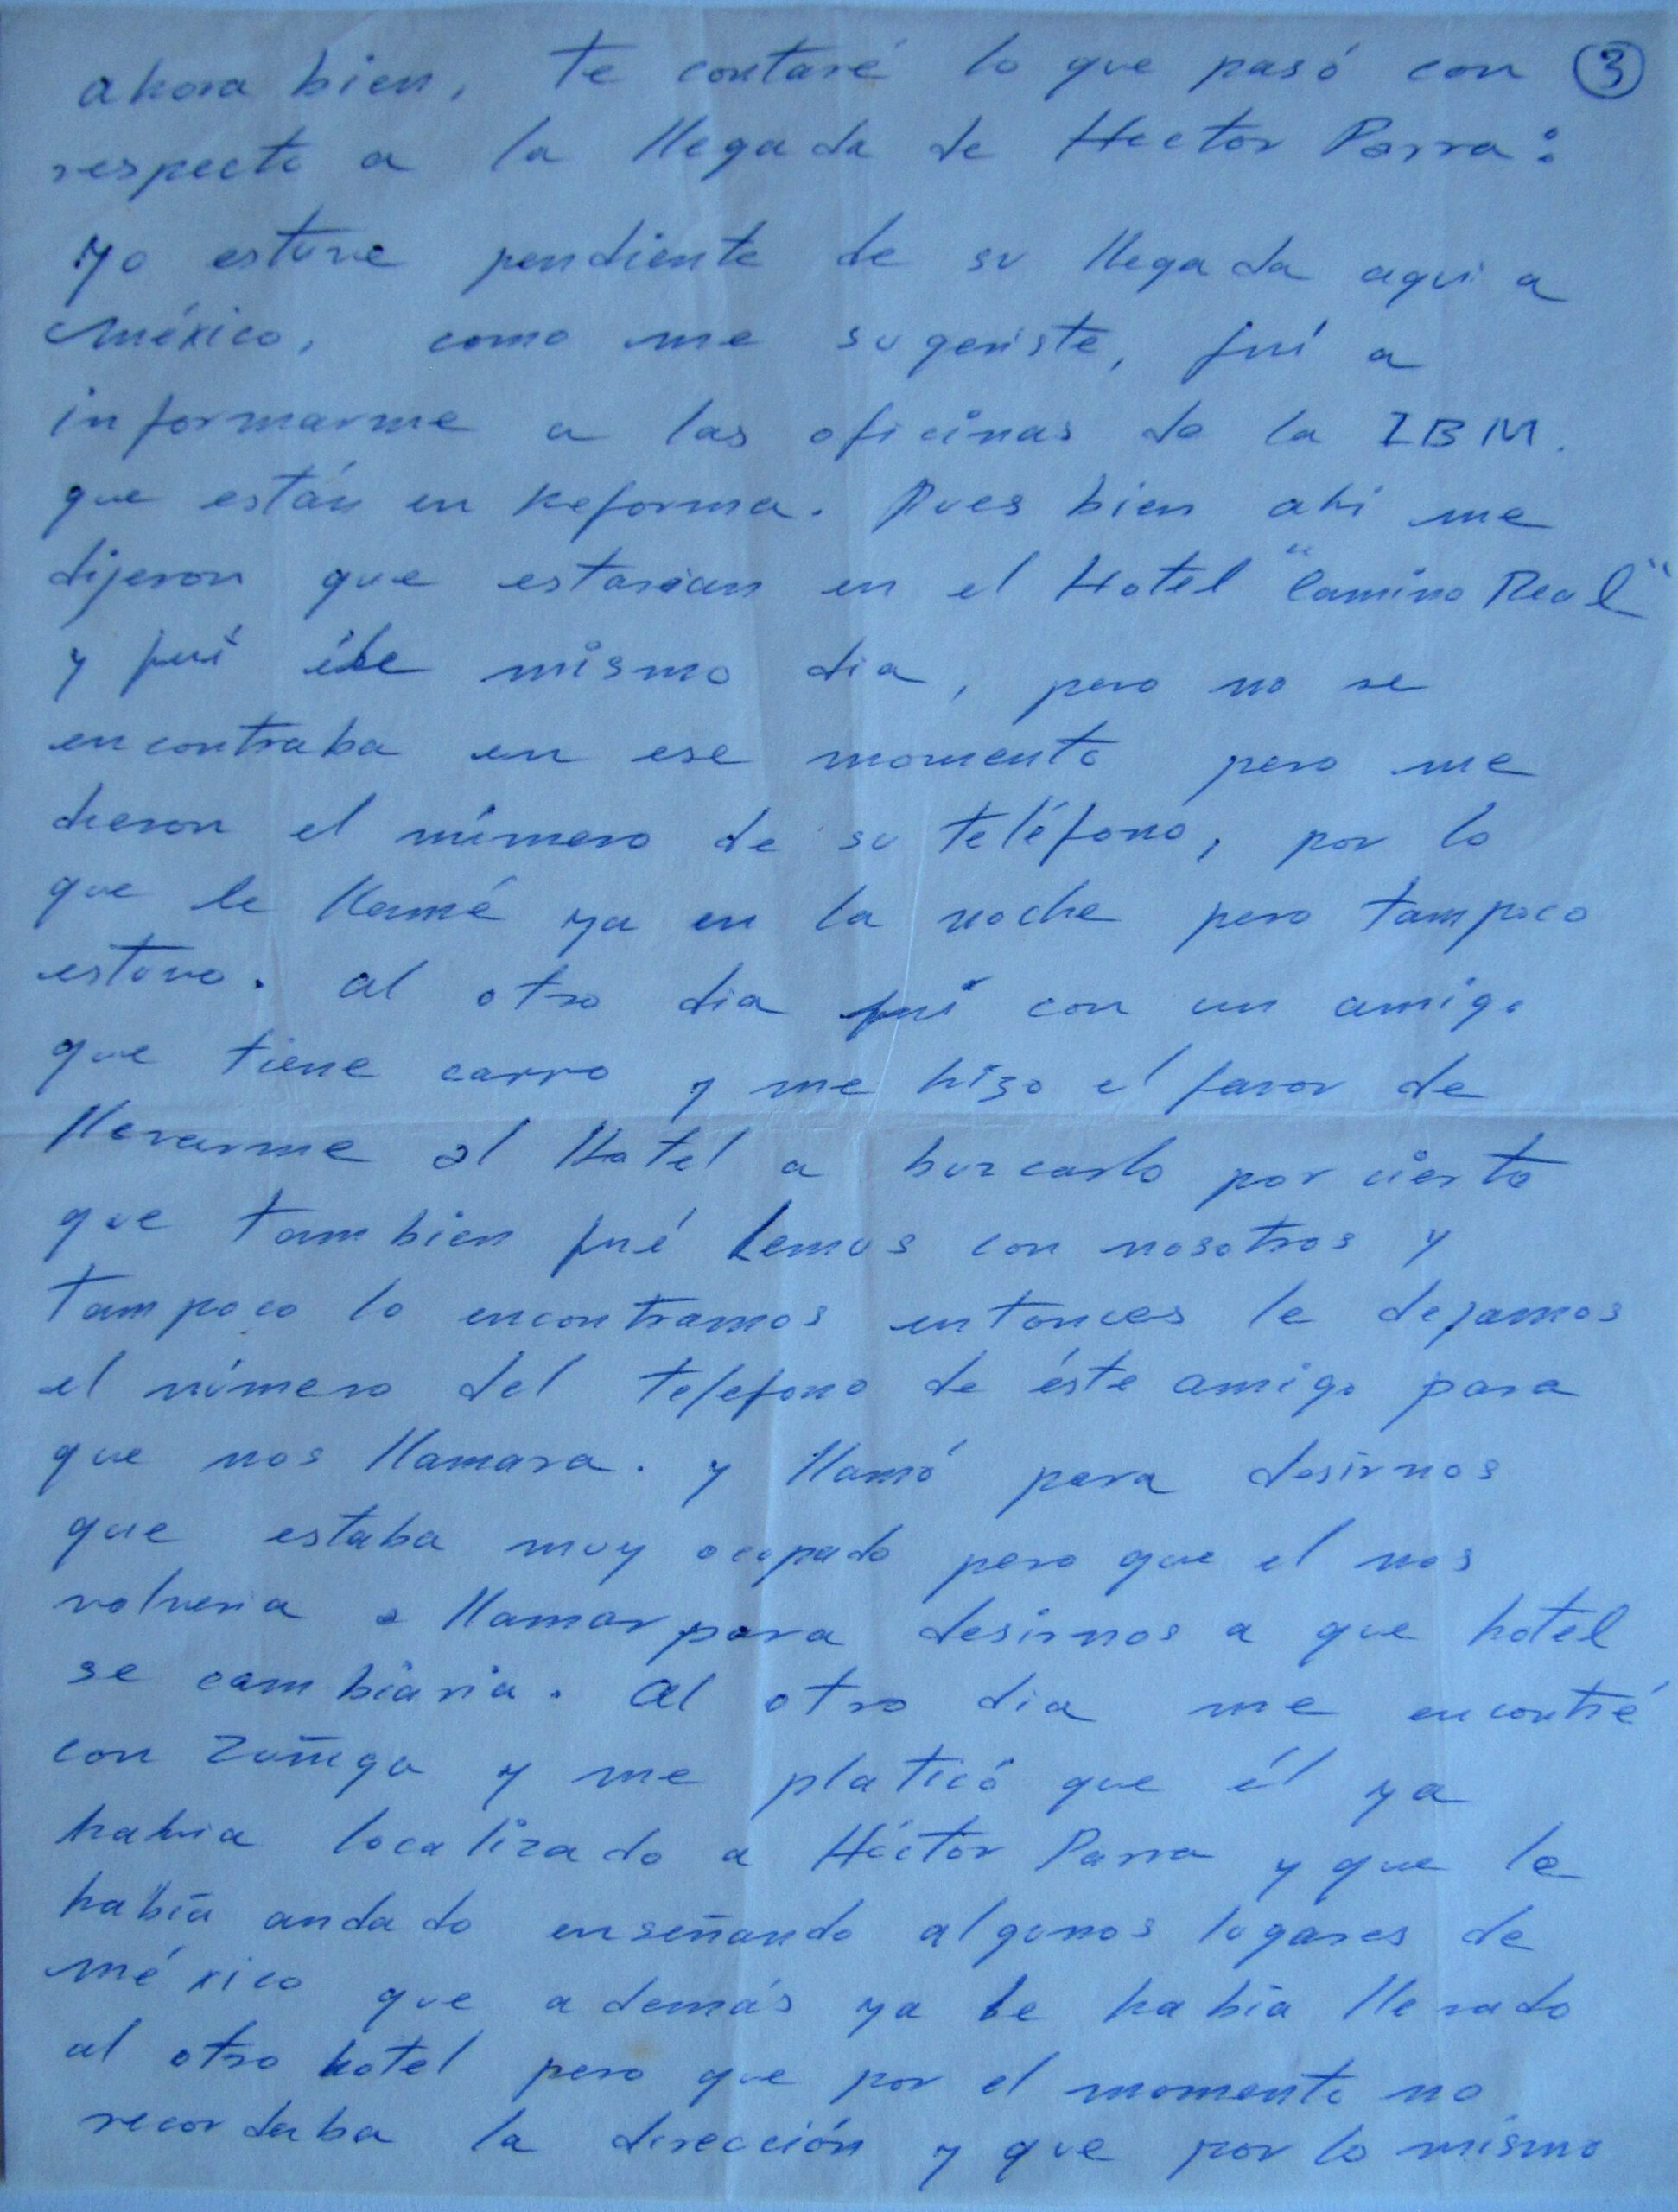 ahora bien, te contaré lo que pasó con ③
respecto a la llegada de Hector Parra:
yo estuve pendiente de su llegada aqui a
méxico, como me sugeriste, fuí a
informarme a las oficinas de la IBM.
que están en Reforma. Pues bien ahi me
dijeron que estarian en el Hotel "Camino Real"
y fuí ese mismo dia, pero no se
encontraba en ese momento pero me
dieron el número de su teléfono, por lo
que le llamé ya en la noche pero tampoco
estuvo. al otro dia fuí con un amigo
que tiene carro y me hizo el favor de
llevarme al Hotel a buzcarlo por cierto
que tambien fué Lemus con nosotros y
tampoco lo encontramos entonces le dejamos
el número del telefono de éste amigo para
que nos llamara. y llamó para desirnos
que estaba muy ocupado pero que el nos
volveria a llamar para desirnos a que hotel
se cambiaria. al otro dia me encontré
con Zuñiga y me platicó que él ya
habia localizado a Héctor Parra y que le
había andado enseñando algunos lugares de
méxico que además ya le habia llevado
al otro hotel pero que por el momento no
recordaba la dirección y que por lo mismo